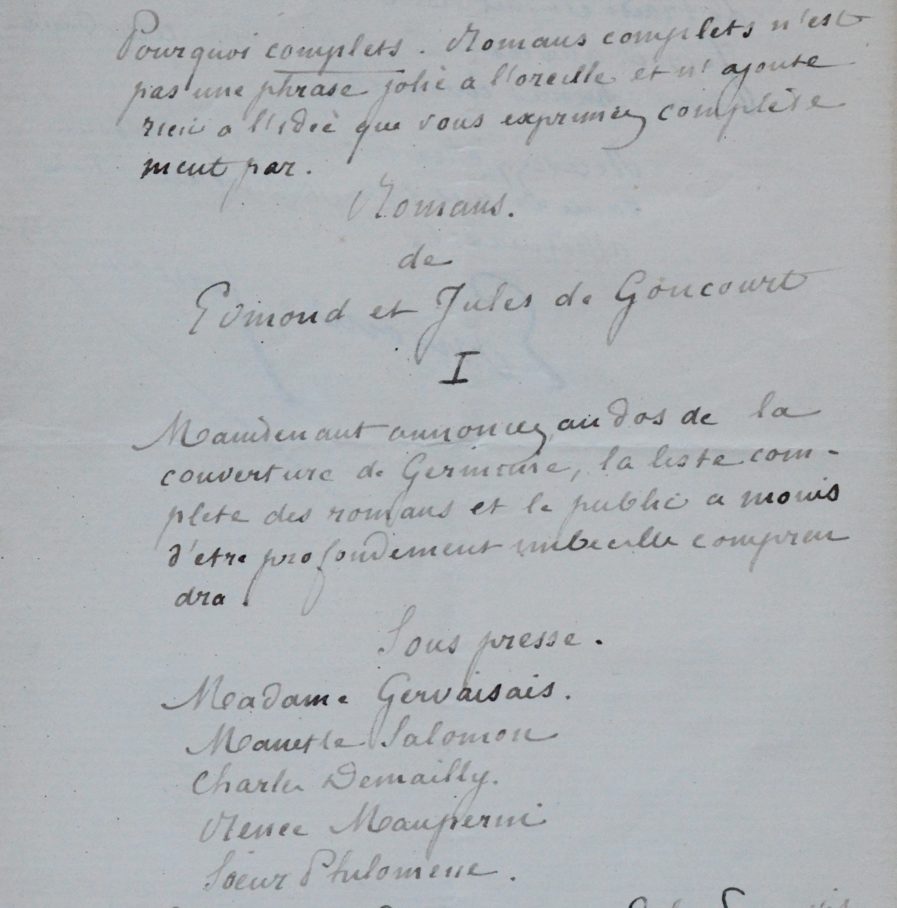 Pourquoi complets. Romans complets n'est
pas une phrase jolie a l'oreille et n'ajoute
rien a l'idée que vous exprimez complète
ment par.
Romans.
de
Edmond et Jules de Goncourt
I
Maintenant annoncez au dos de la
couverture de Germinie, la liste com-
plete des romans et le public a moins
d'etre profondement imbecille compren
dra.
Sous presse.
Madame Gervaisais.
Manette Salomon
Charles Demailly.
Renee Mauperin
Sœur Philomene.